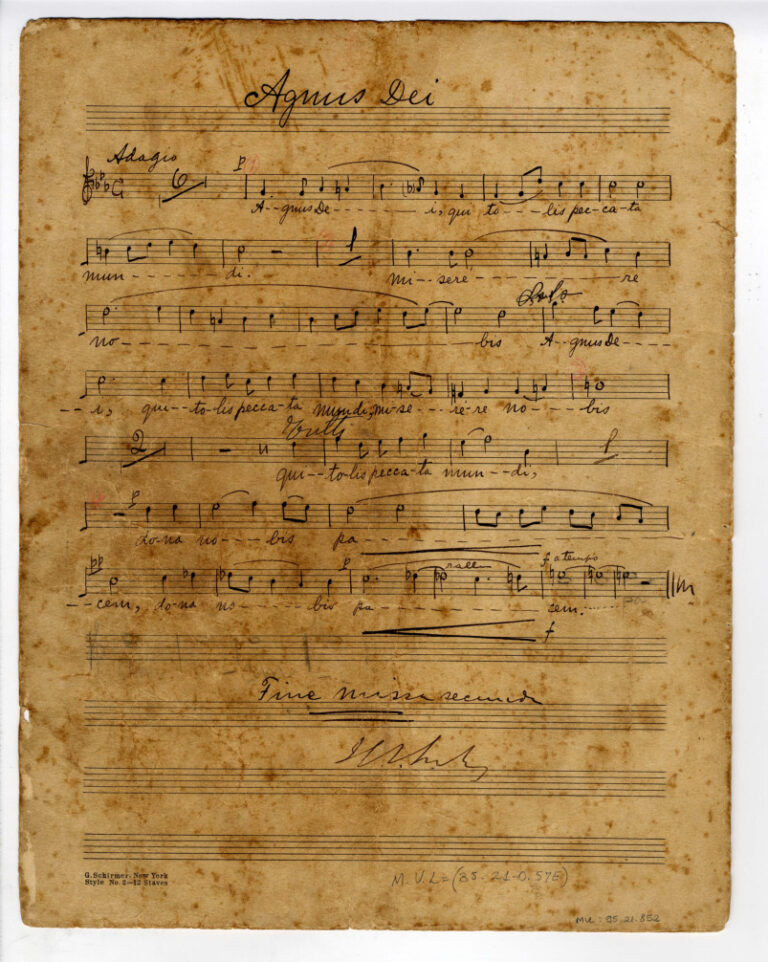 Agnus Dei
Adagio 6 p
A--gnus De--------i, qui to---lis pec-ca-ta
1
mun-----di. mi--sere---------re
Solo
no-----------------bis A--gnus De---
--i, qui--to-lis pecca-ta mundi, mi-se---re-re no---bis
2 Tutti 1
qui--to-lis pecca-ta mun--di,
p
do-na no---bis pa------------
p rall f a tempo
--cem, do-na no----bis pa---------cem.
f
Fine missa secunda
G. Schirmer, New York
Style No. 2—12 Staves
M.V.L=(85-21-0.575)
MUL: 95.21.852